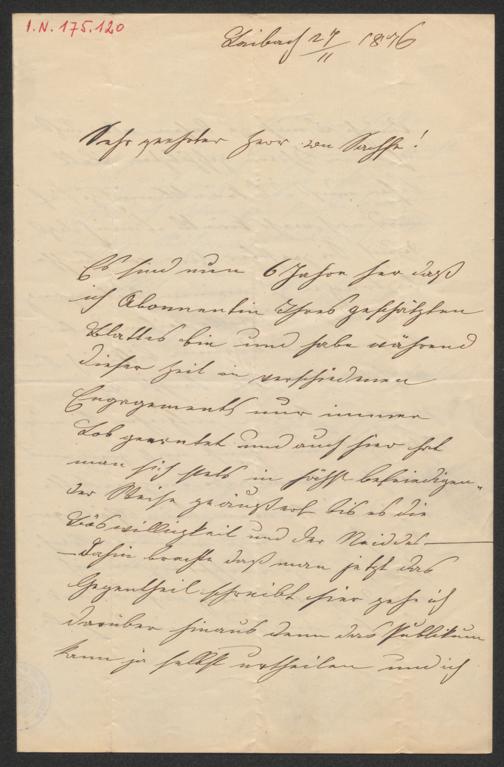 I.N. 175.120
Laibach 27/11 1876
Sehr geehrter Herr von Sachse!
Es sind nun 6 Jahre her daß
ich Abonnentin Ihres geschätzten
Blattes bin und habe während
dieser Zeit in verschiedenen
Engagements nur immer
Lob geerntet und auch hier hat
man sich stets in höchst befriedigen-
der Weise geäußert bis es die
Böswilligkeit und der Neid des —
— dahin brachte daß man jetzt das
Gegentheil schreibt hier gehe ich
darüber hinaus denn das Publikum
kann ja selbst urtheilen und ich